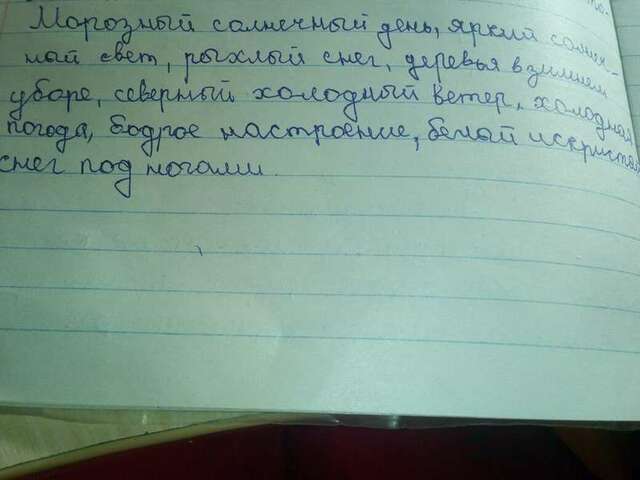 Морозный солнечный день, яркий солнеч-
ный свет, рыхлый снег, деревья в зимнем
уборе, северный холодный ветер, холодная
погода, бодрое настроение, белой искристый
снег под ногами.